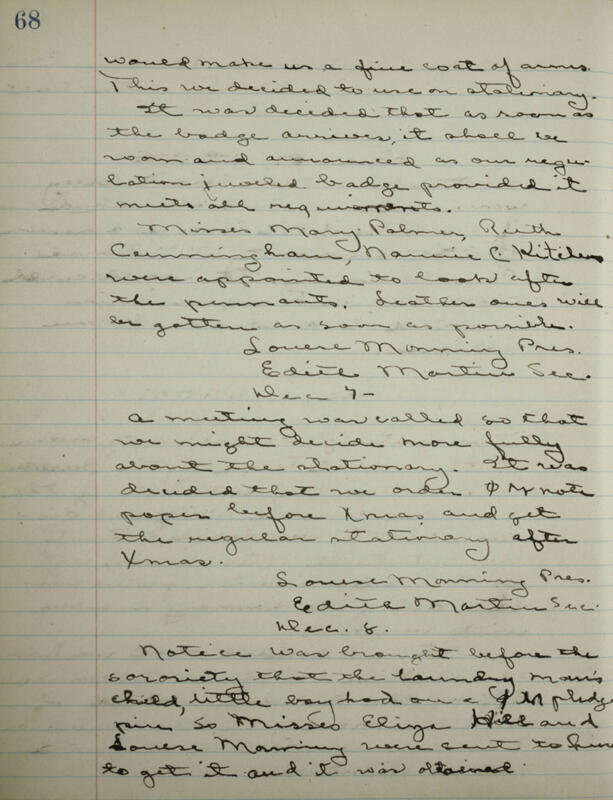 68
would make us a fine coat of arms.
This we decided to use on stationary.
It was decided that as soon as
the badge arrives, it shall be
worn and announced as our regu-
lation jeweled badge provided it
meets all requirements.
Misses Mary Palmer, Ruth
Cunningham, Nannie C. Kitchen
were appointed to look after
the pennants. Leather ones will
be gotten as soon as possible.
Louese Monning Pres.
Edith Martin Sec.
Dec 7-
A meeting was called so that
we might decide more fully
about the stationary. It was
decided that we order Φ M note
paper before Xmas and get
the regular stationary after
Xmas.
Louese Monning Pres.
Edith Martin Sec.
Dec. 8.
Notice was brought before the
sororiety that the laundry man's
child, little boy had on a Φ M pledge
pin so Misses Eliza Hill and
Louese Monning were sent to him
to get it and it was obtained.